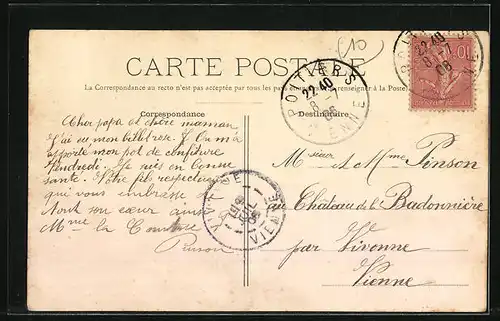 CARTE POSTALE
La Correspondance au recto n'est pas acceptée par tous les pays renseigner à la Poste
Correspondance
Destinataire
Cher papa et chère maman
J'ai eu mon billet
On m'a
apporté mon pot de confiture
Vendredi. Je suis en bonne
santé. Votre fils respectueux
qui vous embrasse
son cœur ainsi
Mme la Comtesse
Pinson
Monsieur et Mme Pinson
au Château de la Badonnière
par Vivonne
Vienne
POITIERS
22 40
8 -7
08
VIENNE
22 40
8 -7
08
VIENNE
10